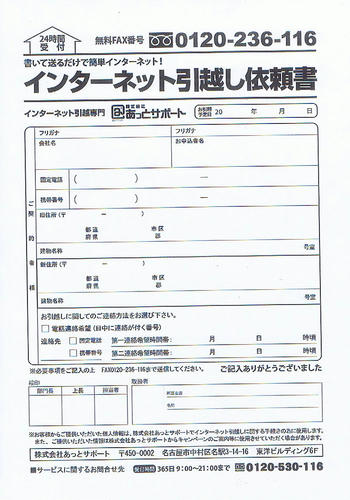 24時間
受 付
無料FAX番号 0120-236-116
書いて送るだけで簡単インターネット！
インターネット引越し依頼書
インターネット引越専門 株式会社 あっとサポート
お引越
予定日 20 年 月 日
フリガナ フリガナ
会社名 お申込者名
固定電話 ( )
携帯番号 ( )
ご契約者様
旧住所(〒 － )
都道 市区
府県 郡
建物名称 号室
新住所(〒 － )
都道 市区
府県 郡
建物名称 号室
お引越しに関してのご連絡方法をお選び下さい。
電話連絡希望(日中に連絡が付く番号)
連絡先 固定電話 第一連絡希望時間帯: 月 日 時頃
携帯番号 第二連絡希望時間帯: 月 日 時頃
※必要事項をご記入の上 FAX0120-236-116まで送信してください。 ご記入ありがとうございました
部門長 上長 担当者
取扱者
※お客様からご提供いただいた個人情報は、株式会社あっとサポートでインターネット引越しに関する手続きの為に使用します。
また、ご提供いただいた情報は株式会社あっとサポートからキャンペーンのご案内等に使用させていただく場合があります。
株式会社あっとサポート 〒450-0002 名古屋市中村区名駅3-14-16 東洋ビルディング6F
■サービスに関するお問合せ先 営業時間 365日 9:00～21:00まで 0120-530-116